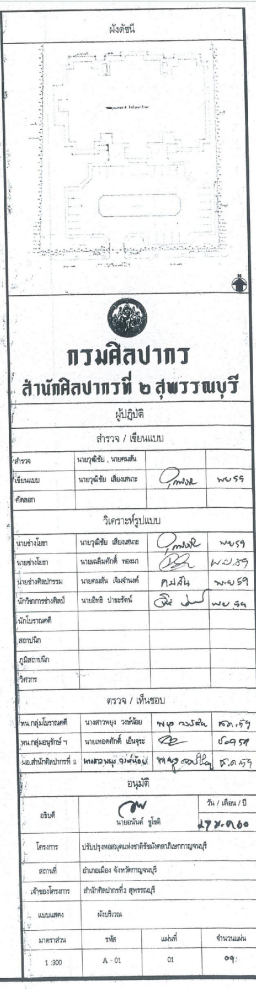 ผังดัชนี
กรมศิลปากร
สำนักศิลปากรที่ ๒ สุพรรณบุรี
ผู้ปฏิบัติ
สำรวจ / เขียนแบบ
สำรวจ นายวุฒิชัย , นายคมสัน
เขียนแบบ นายวุฒิชัย เสียงเสนาะ พย 59
คัดลอก
วิเคราะห์รูปแบบ
นายช่างโยธา นายวุฒิชัย เสียงเสนาะ พย 59
นายช่างโยธา นายเฉลิมศักดิ์ ทองมา พ.ย.59
นายช่างศิลปกรรม นายคมสัน คมสัน พย 59
นักวิชาการช่างศิลป์ นายอิทธิ พย 59
นักโบราณคดี
สถาปนิก
ภูมิสถาปนิก
วิศวกร
ตรวจ / เห็นชอบ
หน.กลุ่มโบราณคดี นางสาวพยุง วงษ์น้อย ธค.59
หน.กลุ่มอนุรักษ์ ฯ นายเทอดศักดิ์ เย็นจุระ
ผอ.สำนักศิลปากรที่ ๒ ธ.ค.59
อนุมัติ
อธิบดี นายอนันต์ ชูโชติ วัน / เดือน / ปี
โครงการ ปรับปรุงหอสมุดแห่งชาติรัชมังคลาภิเษกกาญจนบุรี
สถานที่ อำเภอเมือง จังหวัดกาญจนบุรี
เจ้าของโครงการ สำนักศิลปากรที่๒ สุพรรณบุรี
แบบแสดง ผังบริเวณ
มาตราส่วน รหัส แผ่นที่ จำนวนแผ่น
1 :300 A - 01 01 09